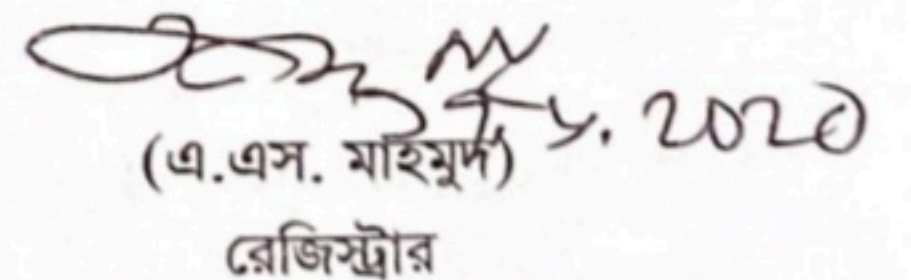 2020
(এ.এস. মাহমুদ)
রেজিস্ট্রার